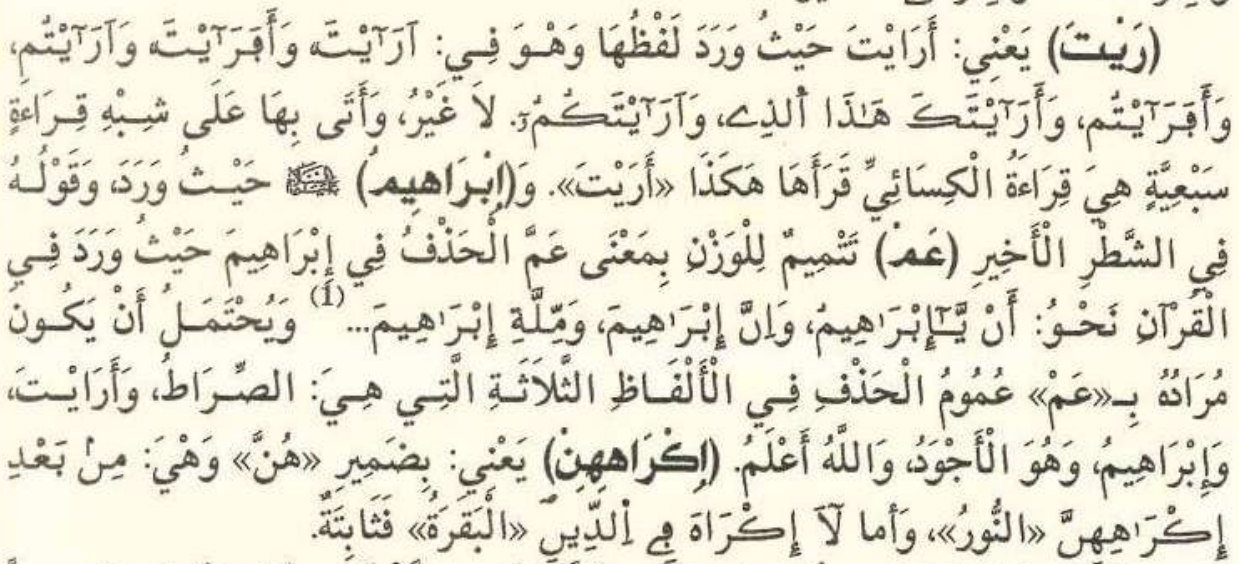 (رَيْتَ) يَعْنِي: أَرَايْتَ حَيْثُ وَرَدَ لَفْظُهَا وَهْوَ فِي: آرَٰٓيْتَ وَأَفَرَٰٓيْتَ وَآرَٰٓيْتُم،
وَأَفَرَٰٓيْتُم، وَأَرَٰٓيْتَكَ هَٰذَا اَ۬لذِے، وَآرَٰٓيْتَكُمُۥٓ. لاَ غَيْرُ، وَأَتَى بِهَا عَلَى شِبْهِ قِرَاءَةٍ
سَبْعِيَّةٍ هِيَ قِرَاءَةُ الْكِسَائِيِّ قَرَأَهَا هَكَذَا «أَرَيْتَ». وَ(إِبْرَاهِيمُ) ﷺ حَيْثُ وَرَدَ، وَقَوْلُهُ
فِي الشَّطْرِ الْأَخِيرِ (عَمْ) تَتْمِيمٌ لِلْوَزْنِ بِمَعْنَى عَمَّ الْحَذْفُ فِي إِبْرَاهِيمَ حَيْثُ وَرَدَ فِي
الْقُرْآنِ نَحْوُ: أَنْ يَّٰٓإِبْرَٰهِيمُ، وَإِنَّ إِبْرَٰهِيمَ، وَمِّلَّةِ إِبْرَٰهِيمَ...(1) وَيُحْتَمَلُ أَنْ يَكُونَ
مُرَادُهُ بِـ«عَمْ» عُمُومُ الْحَذْفِ فِي الْأَلْفَاظِ الثَّلَاثَةِ الَّتِي هِيَ: الصِّرَاطُ، وَأَرَايْتَ،
وَإِبْرَاهِيمُ، وَهُوَ الْأَجْوَدُ، وَاللَّهُ أَعْلَمُ. (إِكْرَاهِهِنْ) يَعْنِي: بِضَمِيرِ «هُنَّ» وَهْيَ: مِنۢ بَعْدِ
إِكْرَٰهِهِنَّ «النُّورُ»، وَأما لَآ إِكْرَاهَ فِے اِ۬لدِّينِ «الْبَقَرَةُ» فَثَابِتَةٌ.